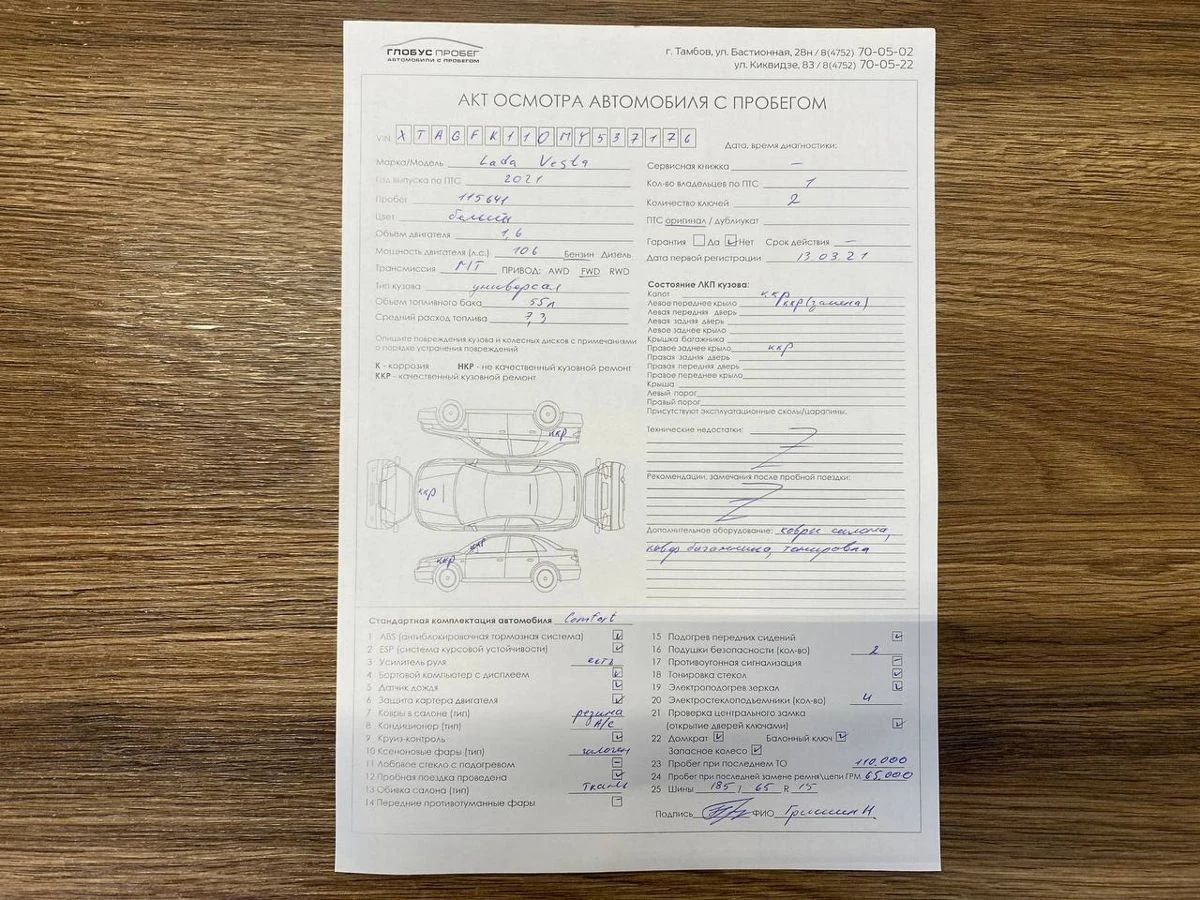 ГЛОБУС ПРОБЕГ
АВТОМОБИЛИ С ПРОБЕГОМ
г. Тамбов, ул. Бастионная, 28н / 8(4752) 70-05-02
ул. Киквидзе, 83 / 8(4752) 70-05-22
АКТ ОСМОТРА АВТОМОБИЛЯ С ПРОБЕГОМ
VIN X T A G F K 1 1 0 M Y 5 3 7 1 7 6
Дата, время диагностики:
Марка/Модель Lada Vesta
Год выпуска по ПТС 2021
Пробег 115641
Цвет белый
Объем двигателя 1,6
Мощность двигателя (л.с.) 106 Бензин Дизель
Трансмиссия МТ ПРИВОД: AWD FWD RWD
Тип кузова универсал
Объем топливного бака 55л
Средний расход топлива 7,3
Опишите повреждения кузова и колесных дисков с примечаниями
о порядке устранения повреждений
К - коррозия НКР - не качественный кузовной ремонт
ККР - качественный кузовной ремонт
ккр
ккр
ккр
ккр
Сервисная книжка –
Кол-во владельцев по ПТС 1
Количество ключей 2
ПТС оригинал / дубликат
Гарантия Да Нет Срок действия –
Дата первой регистрации 13.03.21
Состояние ЛКП кузова:
Капот ккр
Левое переднее крыло ккр (замена)
Левая передняя дверь
Левая задняя дверь
Левое заднее крыло
Крышка багажника
Правое заднее крыло ккр
Правая задняя дверь
Правая передняя дверь
Правое переднее крыло
Крыша
Левый порог
Правый порог
Присутствуют эксплуатационные сколы/царапины.
Технические недостатки:
Рекомендации, замечания после пробной поездки:
Дополнительное оборудование: ковры салона,
ковер багажника, тонировка
Стандартная комплектация автомобиля Comfort
1 ABS (антиблокировочная тормозная система)
2 ESP (система курсовой устойчивости)
3 Усилитель руля есть
4 Бортовой компьютер с дисплеем
5 Датчик дождя
6 Защита картера двигателя
7 Ковры в салоне (тип) резина
8 Кондиционер (тип) A/C
9 Круиз-контроль
10 Ксеноновые фары (тип) галоген
11 Лобовое стекло с подогревом –
12 Пробная поездка проведена
13 Обивка салона (тип) ткань
14 Передние противотуманные фары –
15 Подогрев передних сидений
16 Подушки безопасности (кол-во) 2
17 Противоугонная сигнализация –
18 Тонировка стекол
19 Электроподогрев зеркал
20 Электростеклоподъемники (кол-во) 4
21 Проверка центрального замка
(открытие дверей ключами)
22 Домкрат Балонный ключ
Запасное колесо
23 Пробег при последнем ТО 110.000
24 Пробег при последней замене ремня\цепи ГРМ 65.000
25 Шины 185 / 65 R 15
Подпись ФИО Гришин Н.